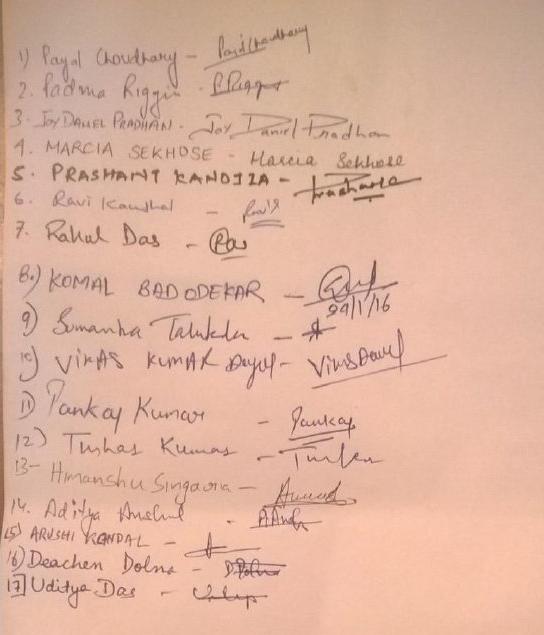 1) Payal Choudhary - Payal Choudhary
2. Padma Riggin - P.Rigg
3. JOY DANIEL PRADHAN - Joy Daniel Pradhan
4. MARCIA SEKHOSE - Marcia Sekhose
5. PRASHANT KANDIZA -
6. Ravi Kaushal - Ravi
7. Rahul Das -
8.) KOMAL BADODEKAR -
29/1/16
9) Talukdar -
10) VIKAS KUMAR Dayal -
11) Pankaj Kumar - Pankaj
12) Tushar Kumar -
13- Himanshu Singaria -
14. Aditya Anshul -
15) ARUSHI KANDAL -
16) Deachen Dolma -
17] Uditya Das -